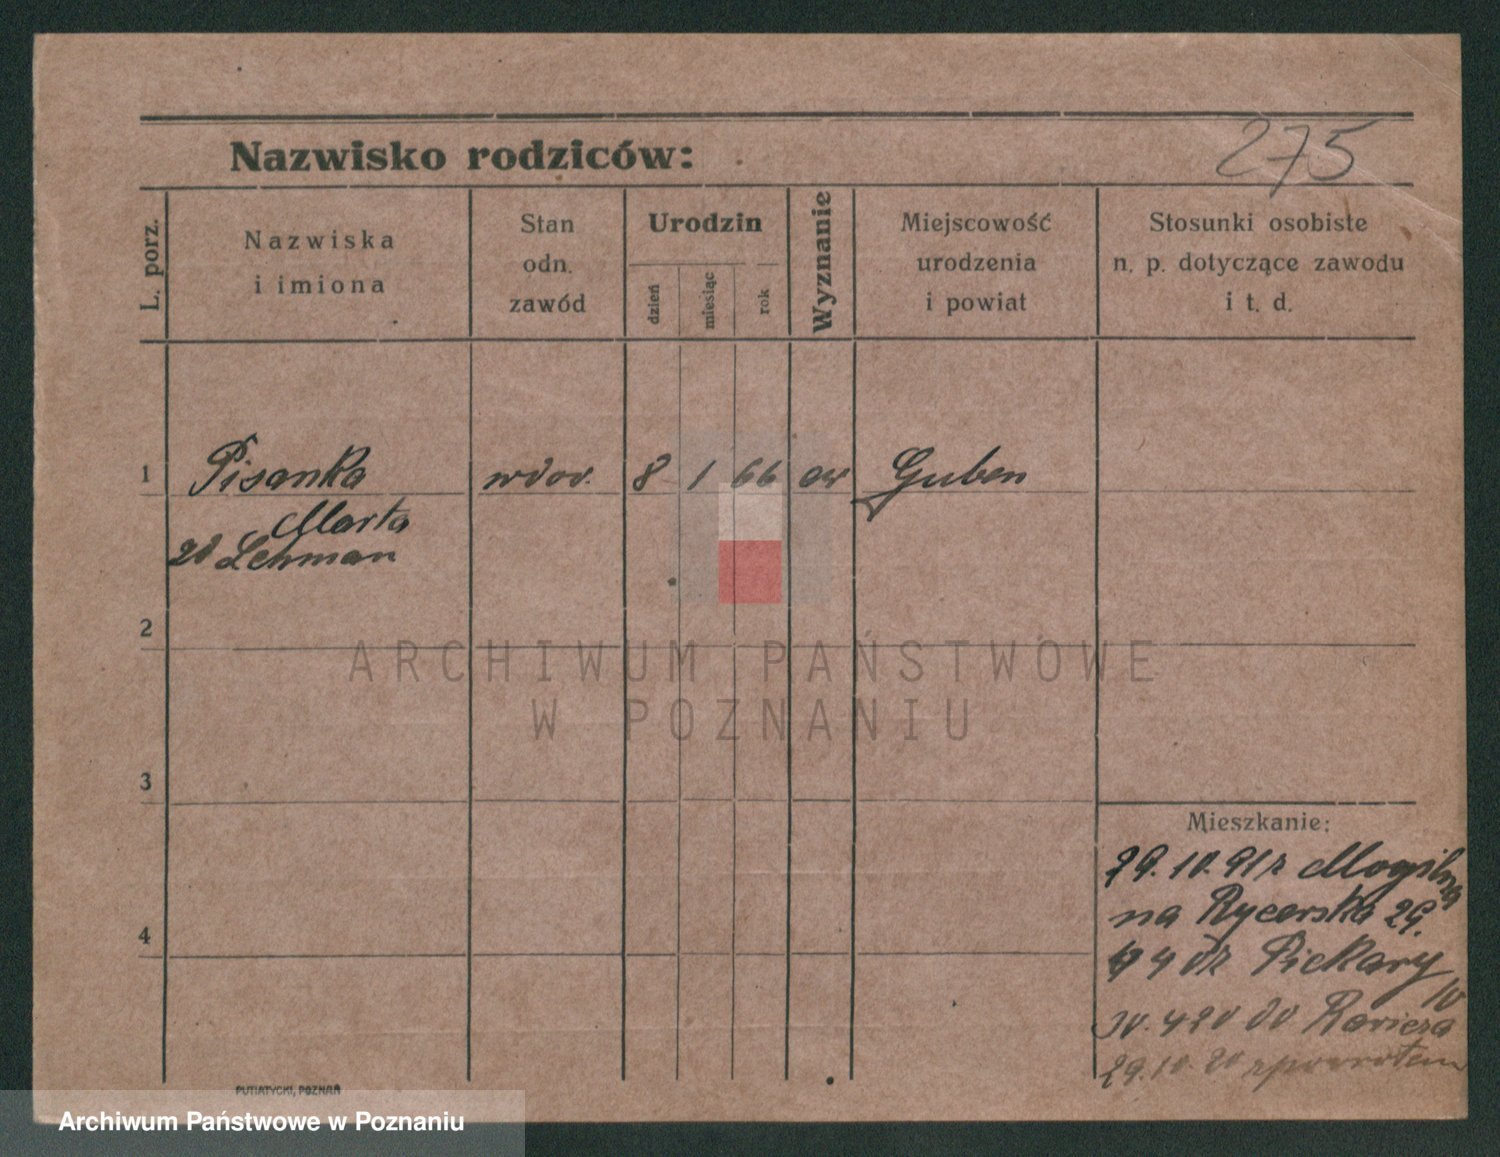 275
Nazwisko rodziców:
L. porz.
Nazwiska
i imiona
Stan
odn.
zawód
Urodzin
dzień
miesiąc
rok
Wyznanie
Miejscowość
urodzenia
i powiat
Stosunki osobiste
n. p. dotyczące zawodu
i t. d.
1 Pisanka wdov. 8 1 66 ew Guben
Marta
Lehman
2
ARCHIWUM PAŃSTWOWE
W POZNANIU
3
Mieszkanie:
29.10.91 z
na Rycerska 29.
4
Piekary
10
30.4 20 do Rawicza
29.10.20 zpowrotem
PUTIATYCKI, POZNAŃ
Archiwum Państwowe w Poznaniu